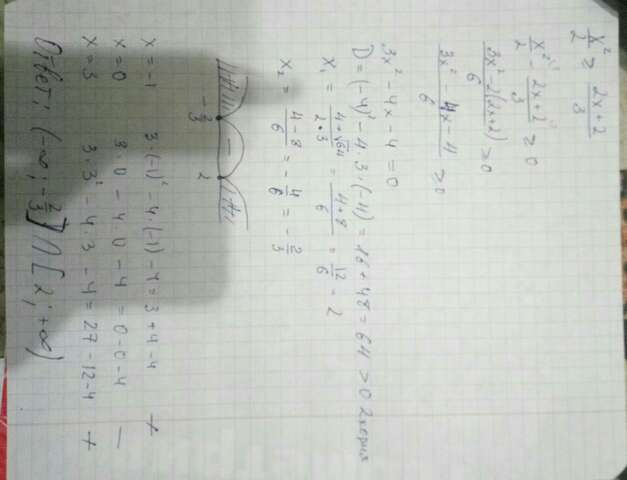 x²/2 ≥ 2x+2/3
x²/2 - 2x+2/3 ≥ 0
3x²-2(2x+2)/6 ≥ 0
3x²-4x-4/6 ≥ 0
3x²-4x-4=0
D=(-4)²-4·3·(-4)=16+48=64>0 2 корня
x₁ = 4+√64/2·3 = 4+8/6 = 12/6 = 2
x₂ = 4-8/6 = -4/6 = -2/3
+ - +
-2/3 2
x=-1 3·(-1)²-4·(-1)-4=3+4-4 +
x=0 3·0-4·0-4=0-0-4 -
x=3 3·3²-4·3-4=27-12-4 +
Ответ: (-∞; -2/3] ∩ [2; +∞)